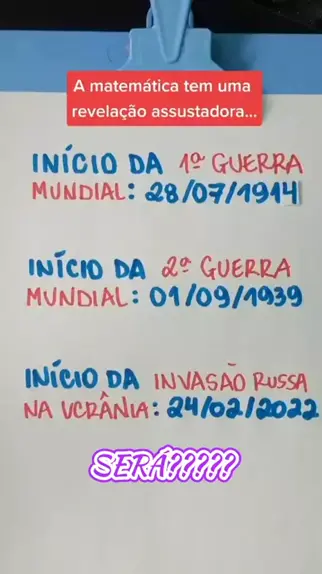 A matemática tem uma
revelação assustadora...
INÍCIO DA 1ª GUERRA
MUNDIAL: 28/07/1914
INÍCIO DA 2ª GUERRA
MUNDIAL: 01/09/1939
INÍCIO DA INVASÃO RUSSA
NA UCRÂNIA: 24/02/2022
SERÁ?????